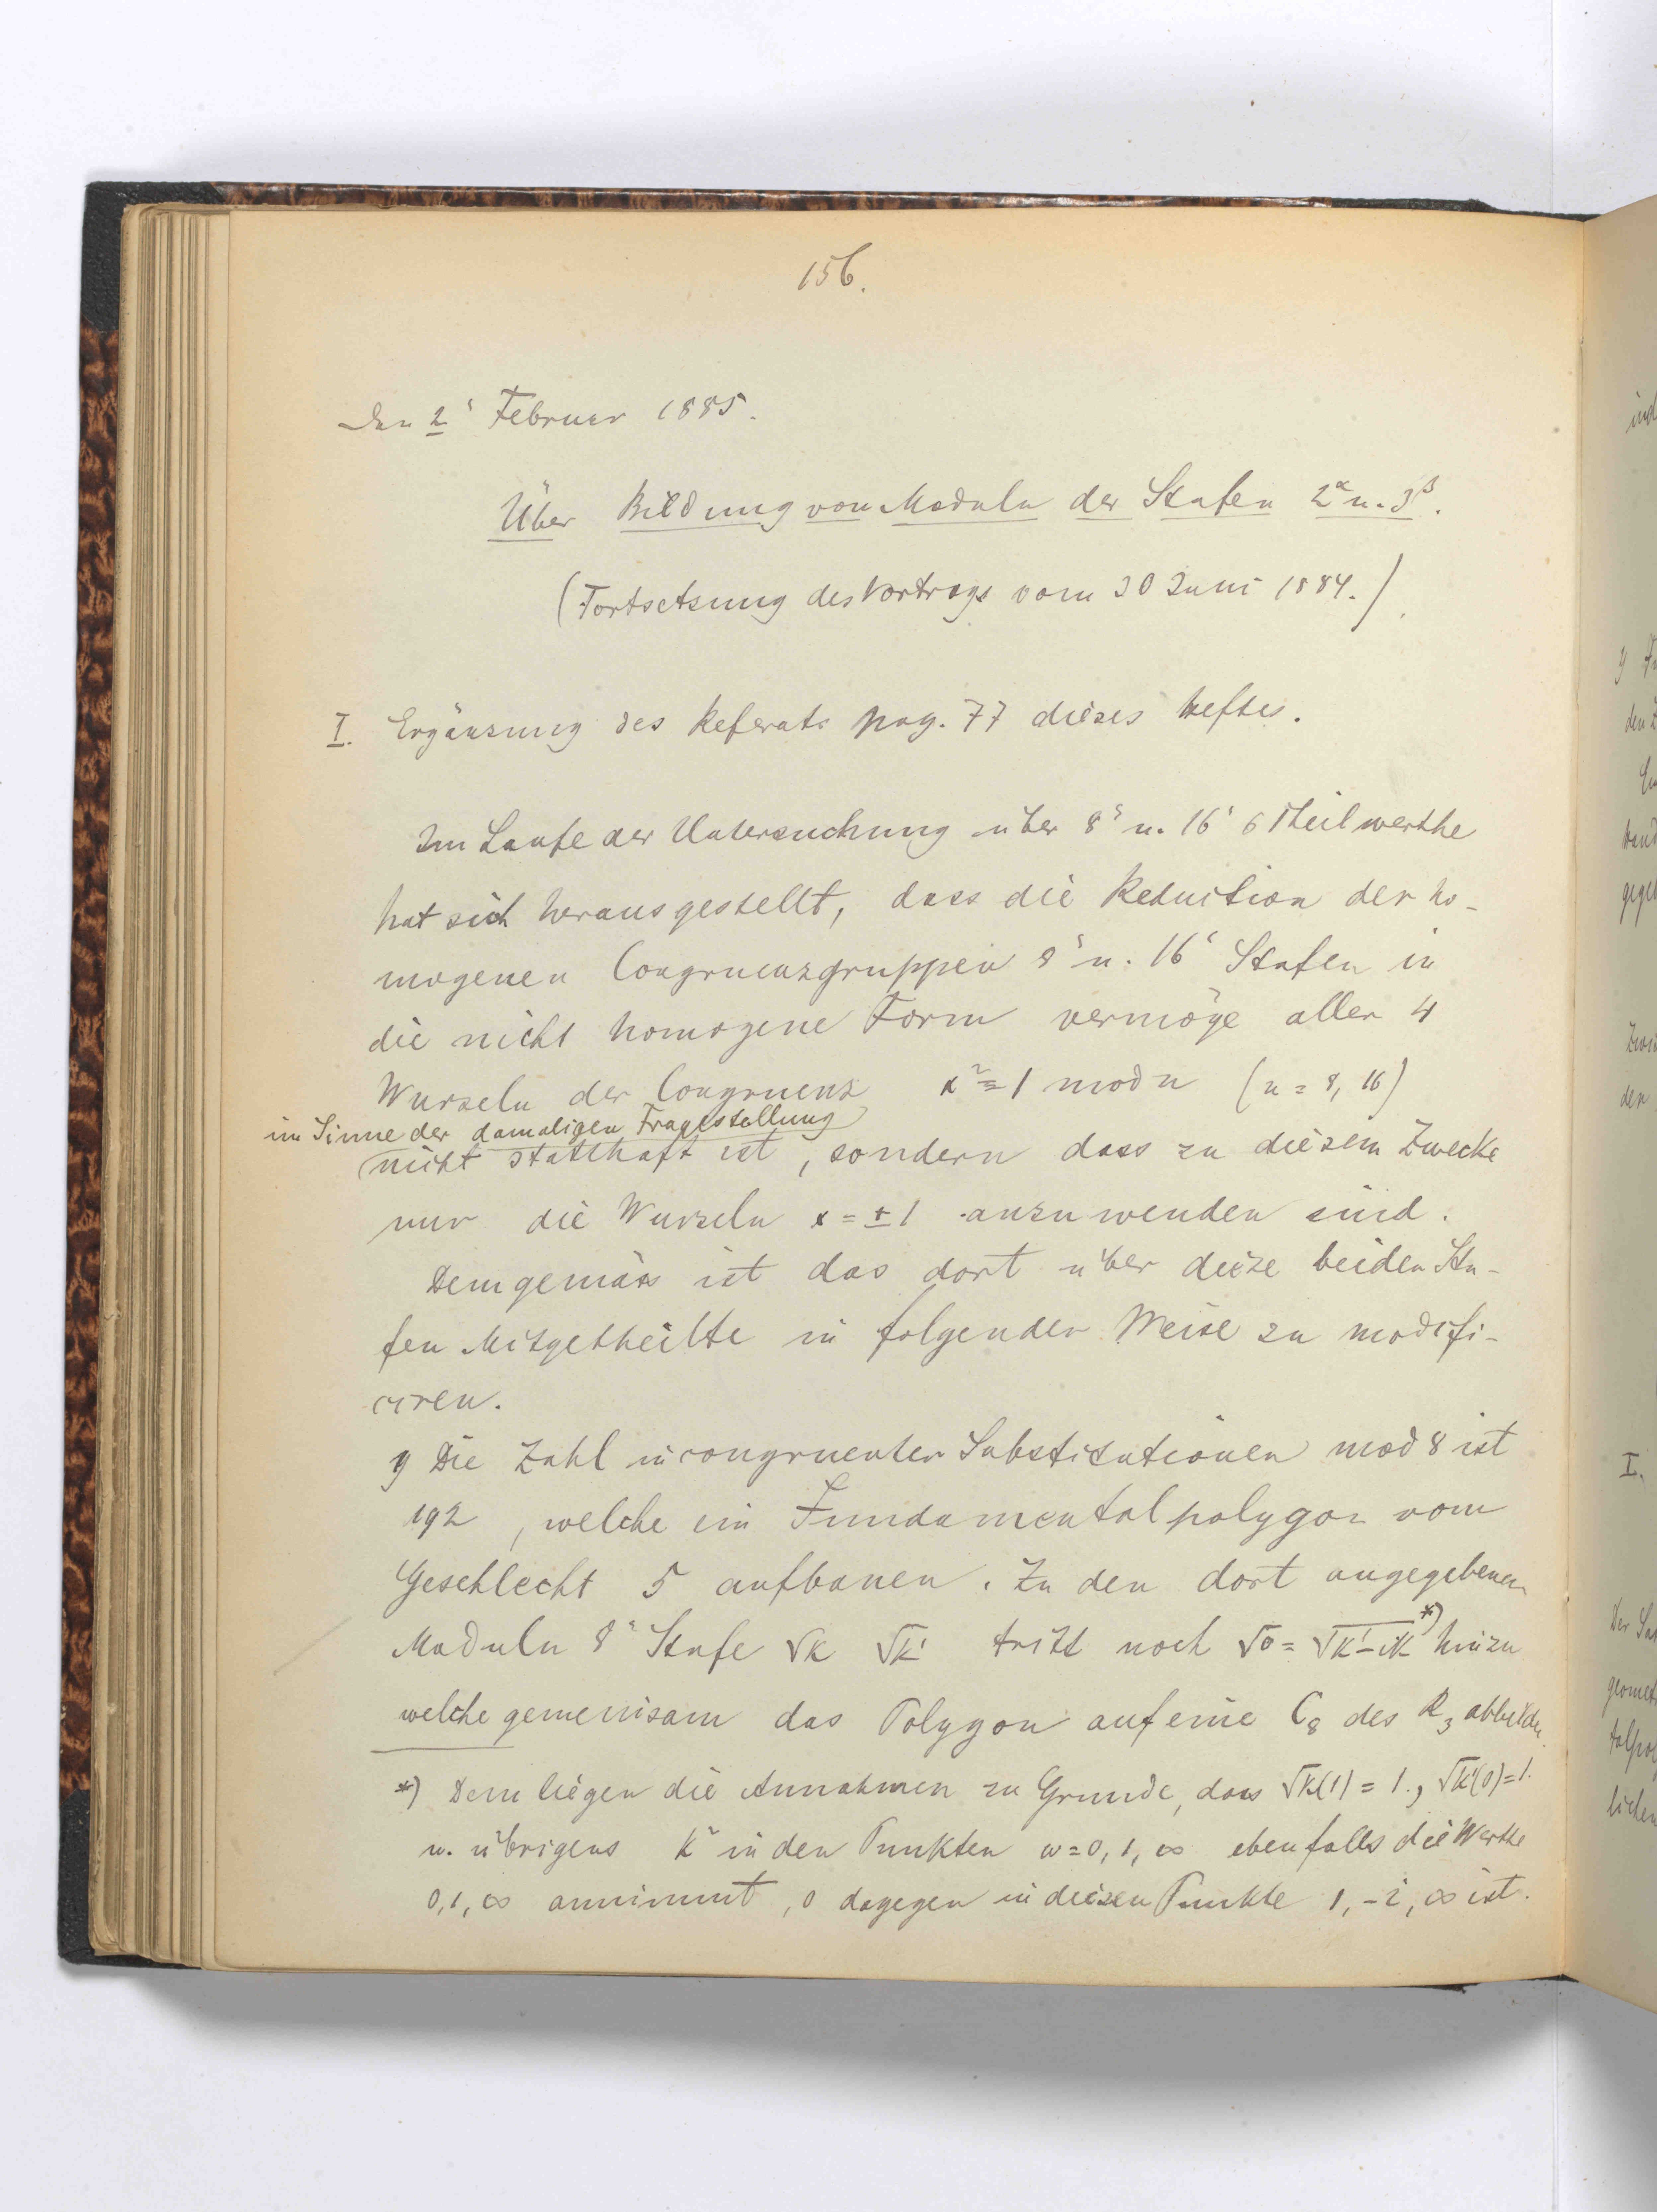 156.
Den 2ͭ Februar 1885.
Über Bildung von Moduln der Stufen 2^α u. 3^β.
(Fortsetzung des Vortrags vom 30 Juni 1884.)
I. Ergänzung des Referats pag. 77 dieses Heftes.
Im Laufe der Untersuchung über 8ͭ u. 16ͭ Theilwerthe
hat sich herausgestellt, dass die Reduction der ho-
mogenen Congruenzgruppen 8ͭ u. 16ͭ Stufen in
die nicht homogene Form vermöge aller 4
Wurzeln der Congruenz x² ≡ 1 mod n (n = 8, 16)
im Sinne der damaligen Fragestellung
nicht statthaft ist, sondern dass zu diesem Zwecke
nur die Wurzeln x = ± 1 anzuwenden sind.
Demgemäss ist das dort über diese beiden Stu-
fen Mitgetheilte in folgender Weise zu modifi-
ciren.
Die Zahl incongruenter Substitutionen mod 8 ist
192, welche ein Fundamentalpolygon vom
Geschlecht 5 aufbauen. Zu den dort angegebenen
Moduln 8ͭ Stufe √k √k' tritt noch √o = √k'-ik *) hinzu
welche gemeinsam das Polygon auf eine C₈ des R₃ abbilden.
*) Dem liegen die Annahmen zu Grunde, dass √k(1) = 1., √k'(0) = 1.
u. übrigens k² in den Punkten ω = 0, 1, ∞ ebenfalls die Werthe
0, 1, ∞ annimmt, o dagegen in diesen Punkte 1, -i, ∞ ist.